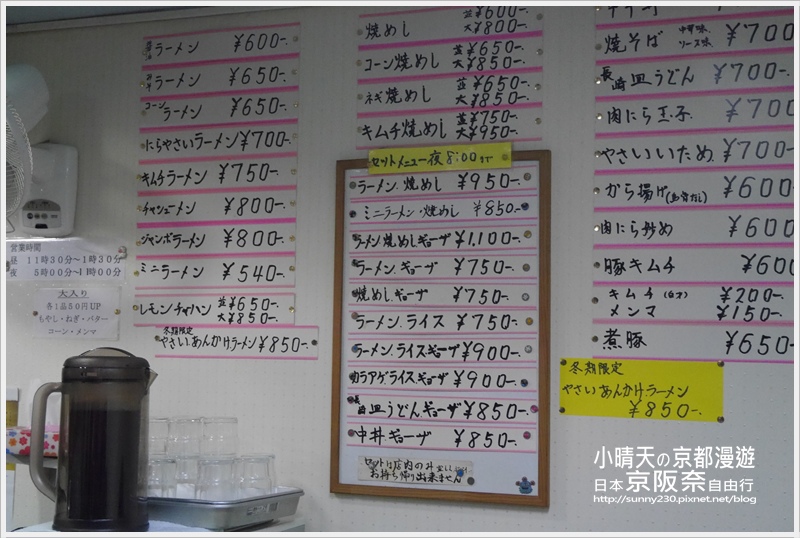 醤油ラーメン ¥600-.
ラーメン ¥650-.
コーンラーメン ¥650-.
にらやさいラーメン ¥700-
キムチラーメン ¥750-
チャシューメン ¥800-
ジャンボラーメン ¥800-.
ミニラーメン ¥540-.
レモンチャハン 並¥650-. 大¥850-.
冬期限定
やさいあんかけラーメン ¥850-.
営業時間
昼 11時30分~1時30分
夜 5時00分~11時00分
大入り
各1品50円UP
もやし・ねぎ・バター
コーン・メンマ
焼めし 並¥600-. 大¥850-.
コーン焼めし 並¥650-. 大¥850-.
ネギ焼めし 並¥650-. 大¥850-.
キムチ焼めし 並¥750-. 大¥950-.
セットメニュー夜8:00まで
ラーメン.焼めし ¥950-.
ミニラーメン・焼めし ¥850-.
ラーメン.焼めしギョーザ ¥1,100-.
ラーメン.ギョーザ ¥750-.
焼めしギョーザ ¥750-.
ラーメン.ライス ¥750-.
ラーメン.ライスギョーザ ¥900-.
カラアゲ.ライスギョーザ ¥900-.
長崎皿うどん.ギョーザ ¥850-.
中丼ギョーザ ¥850-.
セットは店内のみ
お持ち帰り出来ません
焼そば 中華味、ソース味、 ¥700
長崎皿うどん ¥700-
肉にら玉子 ¥700
やさいいため ¥700
から揚げ ¥600
肉にら炒め ¥600
豚キムチ ¥600
キムチ ¥200-
メンマ ¥150-.
煮豚 ¥650-
冬期限定
やさいあんかけラーメン
¥850-.
小晴天の京都漫遊
日本京阪奈自由行
http://sunny230.pixnet.net/blog